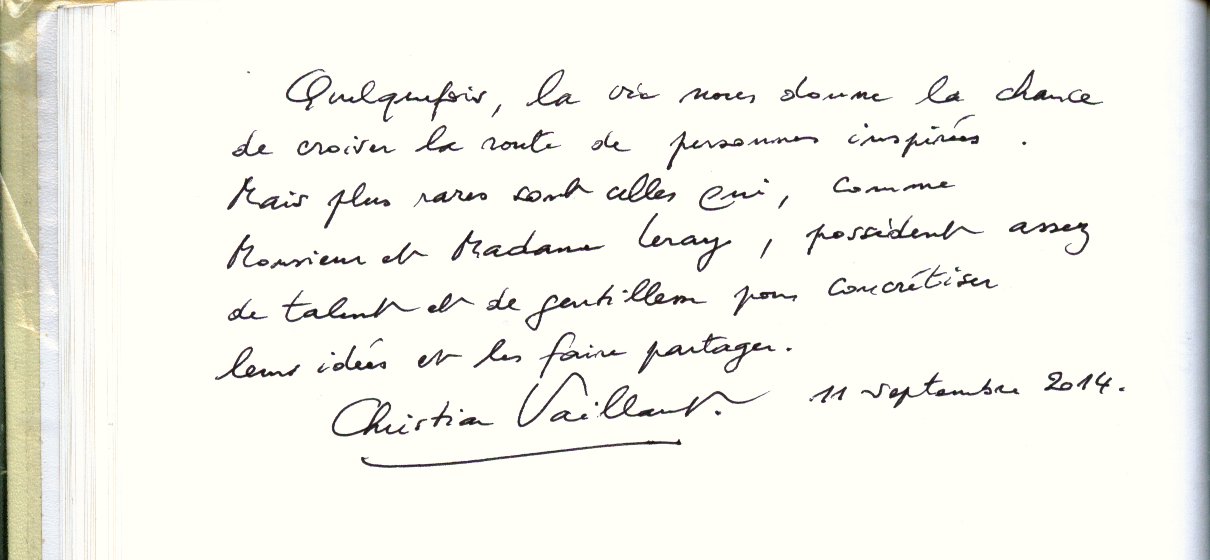 Quelquefois, la vie nous donne la chance
de croiser la route de personnes inspirées.
Mais plus rares sont celles qui, comme
Monsieur et Madame Leray, possèdent assez
de talent et de gentillesse pour concrétiser
leurs idées et les faire partager.
Christian Vaillant. 11 septembre 2014.